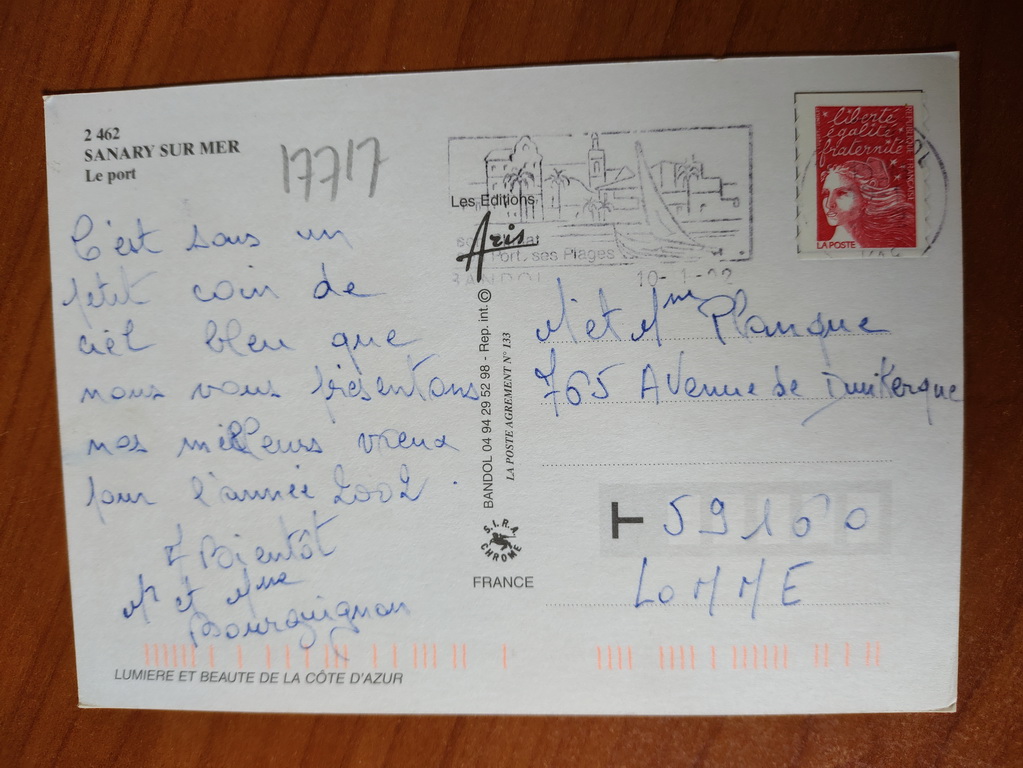 2 462
SANARY SUR MER
Le port
17717
C'est sous un
petit coin de
ciel bleu que
nous vous présentons
nos meilleurs vœux
pour l'année 2002.
A Bientôt
Mr et Mme
Bourguignon
LUMIERE ET BEAUTE DE LA CÔTE D'AZUR
Les Editions
Aris
Port, ses Plages
BANDOL
10-1-02
BANDOL 04 94 29 52 98 - Rep. int. ©
LA POSTE AGREMENT N° 133
S.I.R.A.
CHROME
FRANCE
liberté
égalité
fraternité
REPUBLIQUE FRANÇAISE
LA POSTE
M et Mme Planque
765 Avenue de Dunkerque
T 59160
LOMME